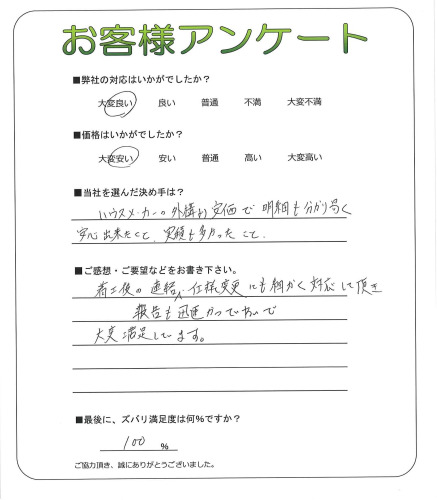 お客様アンケート
■弊社の対応はいかがでしたか？
大変良い 良い 普通 不満 大変不満
■価格はいかがでしたか？
大変安い 安い 普通 高い 大変高い
■当社を選んだ決め手は？
ハウスメーカーの外構より安価で 明細も分かり易く
安心出来たこと、実績も多かったこと。
■ご感想・ご要望などをお書き下さい。
着工後の連絡、仕様変更にも細かく対応して頂き
報告も迅速かつていねいで
大変満足しています。
■最後に、ズバリ満足度は何%ですか？
100 %
ご協力頂き、誠にありがとうございました。